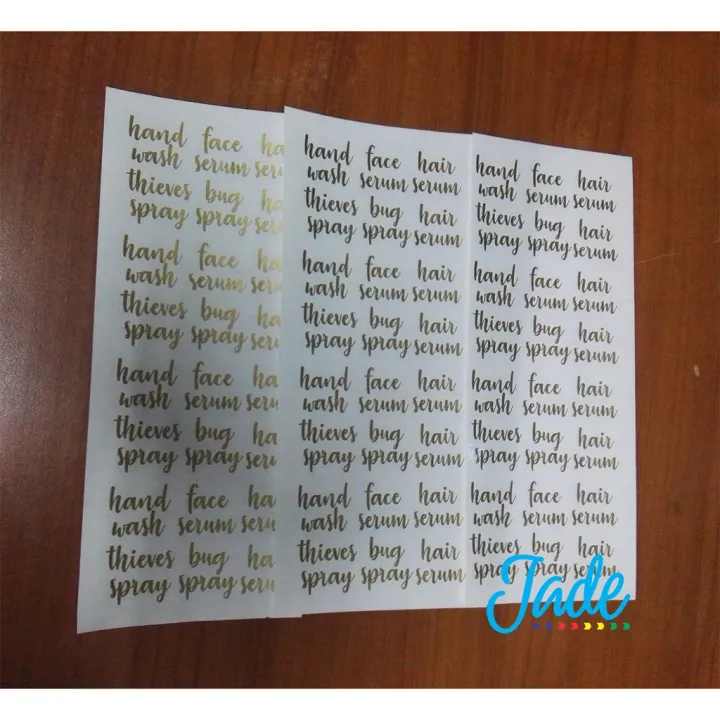 hand face ha
wash serum seru
thieves bug ha
spray spray seru
hand face ha
wash serum seru
thieves bug ha
spray spray seru
hand face ha
wash serum seru
thieves bug ha
spray spray seru
hand face ha
wash serum seru
thieves bug ha
spray spray seru
hand face hair
wash serum serum
thieves bug hair
spray spray serum
hand face hair
wash serum serum
thieves bug hair
spray spray serum
hand face hair
wash serum serum
thieves bug hair
spray spray serum
hand face hair
wash serum serum
thieves bug hair
spray spray serum
hand face hair
wash serum serum
thieves bug hair
spray spray serum
hand face hair
wash serum serum
thieves bug hair
spray spray serum
hand face hair
wash serum serum
thieves bug hair
spray spray serum
hand face hair
wash serum serum
thieves bug hair
spray spray serum
Jade